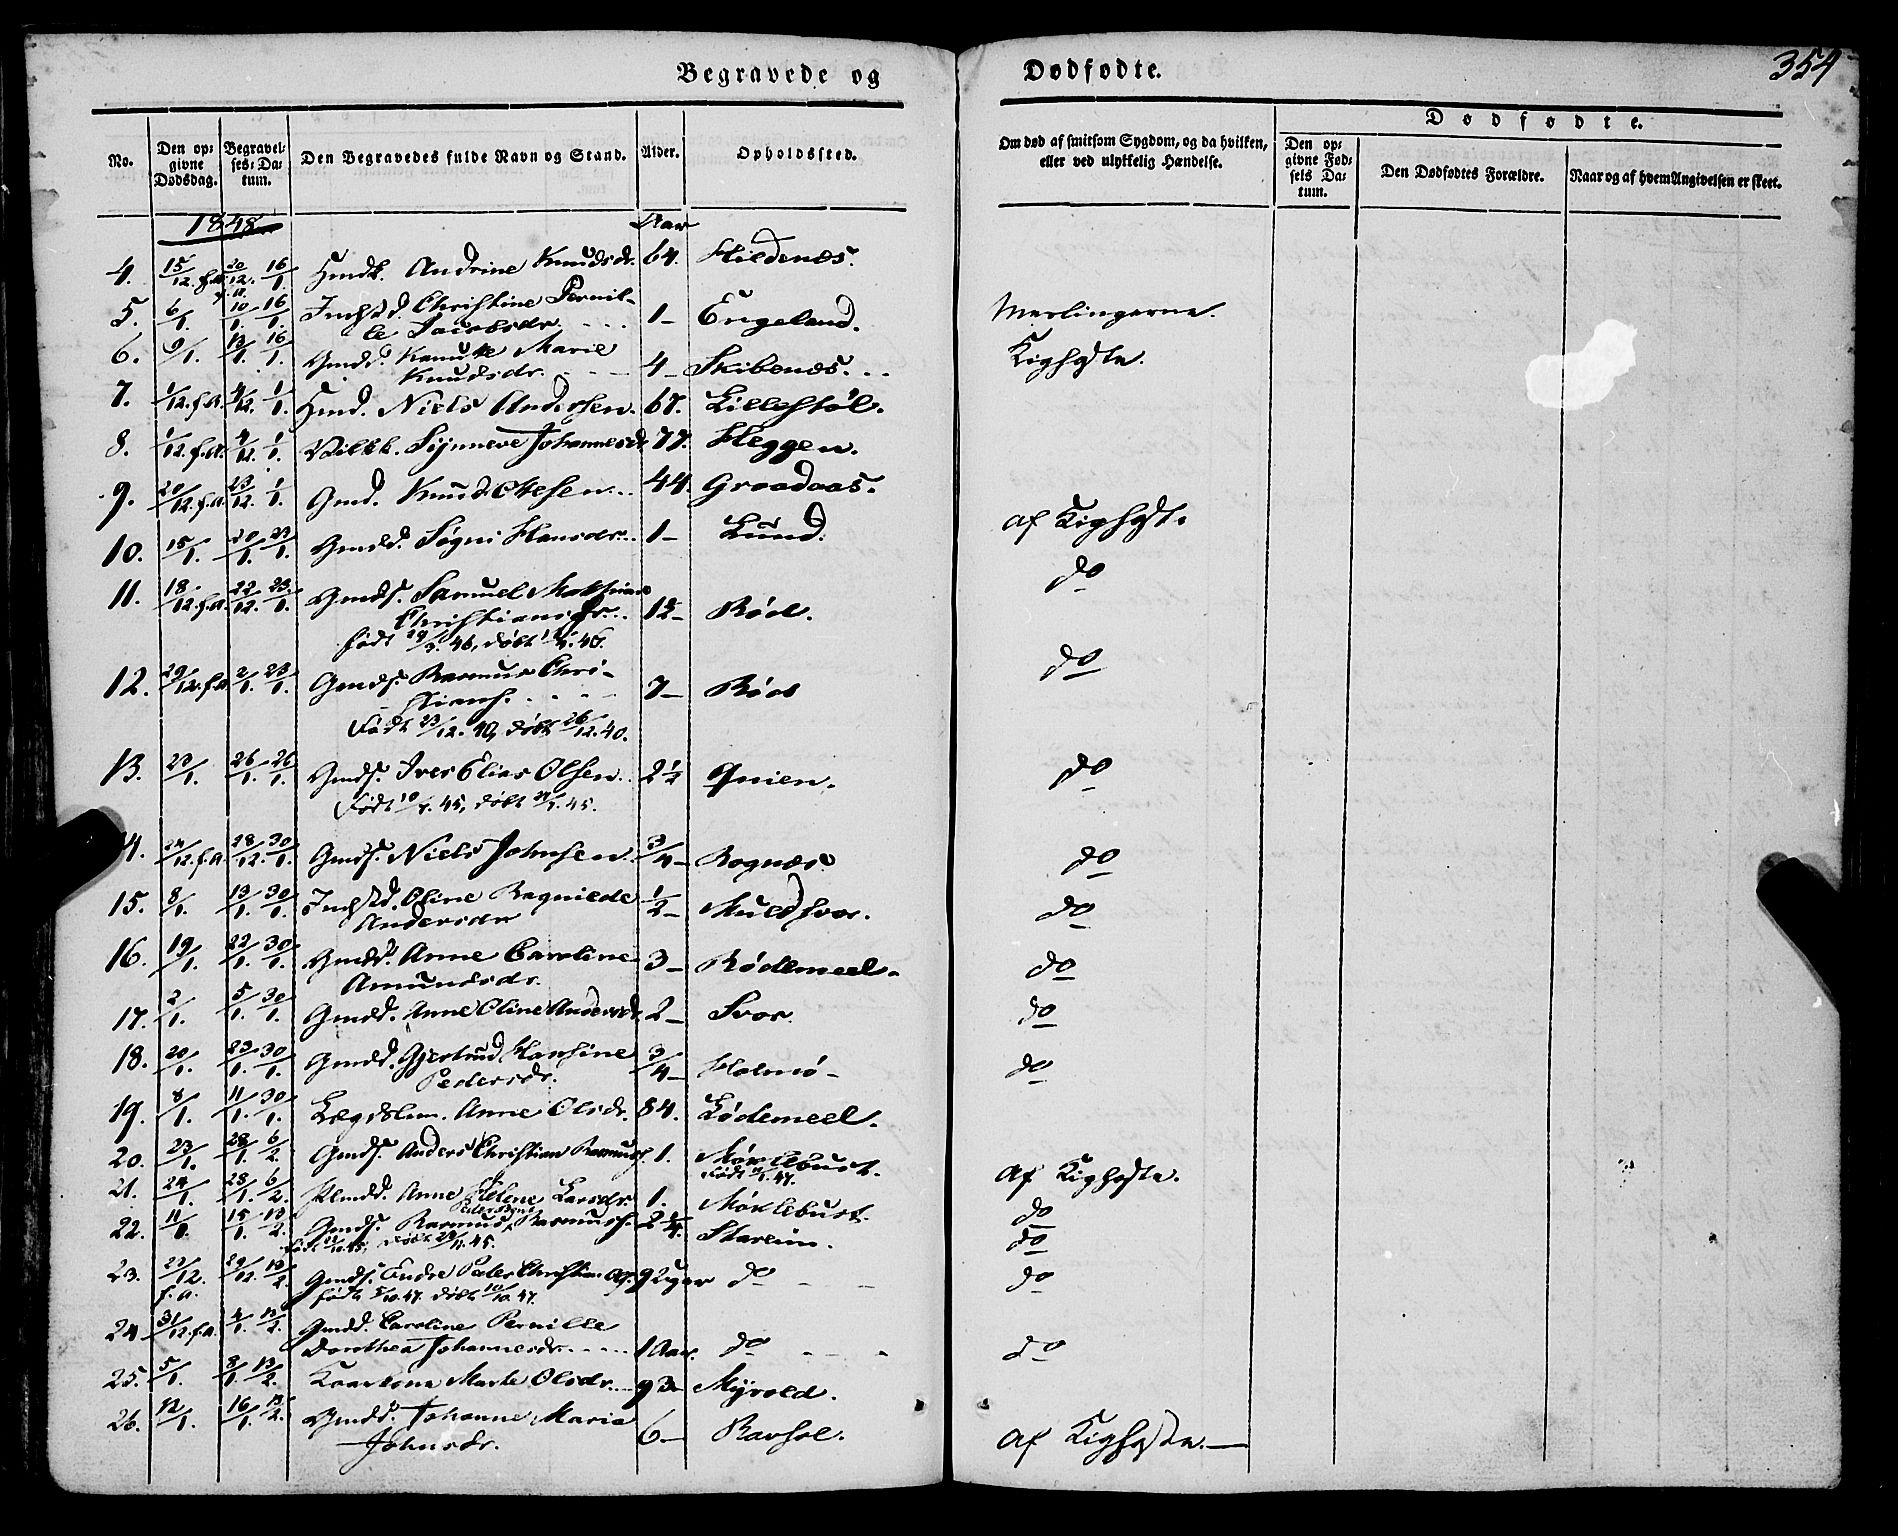 Begravede og
Dødfødte.
354
No.
Den op-
givne
Dødsdag.
Begravel-
ses-Da-
tum.
Den Begravedes fulde Navn og Stand.
Alder.
Opholdssted.
Om død af smitsom Sygdom, og da hvilken,
eller ved ulykkelig Hændelse.
Dødfødte.
Den op-
givne Fød-
sels Da-
tum.
Den Dødfødtes Forældre.
Naar og af hvem Angivelsen er skeet.
1848
Aar
4. 15/12. f.A. 20/12. 16/1. Hmdk. Andrine Knudsdr. 64. Hildenæs.
5. 6/1. 10/1. 16/1. Indstd. Christine Pernil-
le Jacobsdr. 1 – Engeland. Mæslingerne.
6. 9/1. 13/1. 16/1. Gmdd. Marie
Knudsdr. 4 – Skibenæs. Kighoste.
7. 1/12. f.A. 4/12. 1/1. Hmd. Niels Andersen. 67. Lillestøl.
8. 1/12. f.A. 4/12. 1/1. Synneve Johannesdr. 77. Heggen.
9. 20/12. f.A. 23/12. 1/1. Gmd. Knud Olesen. 44. Graadaas. af Kighost.
10. 15/1. 20/1. 23/1. Gmdd. Søgni Hansdr. 1 – Lund. do
11. 18/12. f.A. 22/12. 23/1. Gmds. Samuel Mathias
Christians. 1½ – Rød. do
født 46, døbt
12. 29/12. f.A. 2/1. 23/1. Gmds. Rasmus Chri-
stians. 7 – Rød do
Født 23/12. 40, døbt 26/12. 40.
13. 23/1. 26/1. 26/1. Gmds. Iver Elias Olsen. 2½ Qvien. do
Født 45, døbt 45.
14. 24/12. f.A. 28/12. 30/1. Gmds. Niels Johnsen. 3/4 – Rognæs. do
15. 8/1. 13/1. 30/1. Indstd. Oline Ragnilde
Andersdr ½ – Muldsvor. do
16. 19/1. 22/1. 30/1. Gmdd. Anne Caroline
Amundsdr. 3 – Rødemeel. do
17. 2/1. 5/1. 30/1. Gmdd. Anne Oline Andersdr. 2 – Svor. do
18. 20/1. 23/1. 30/1. Gmdd. Gjertrud Hansine
Pedersdr. 3/4 – Holmø – do
19. 8/1. 11/1. 30/1. Lægdslem. Anne Olsdr. 84. Lødemeel.
20. 23/1. 28/1. 6/2. Gmds. Anders Christian Rasmuss. 1. Møklebust. Af Kighoste.
Født 47.
21. 24/1. 28/1. 6/2. Anne Helene Larsdr. 1. Møklebust. do
22. 11/1. 15/1. 13/2. Gmds. Rasmus Rasmuss. 2¼ Stareim. do
født 45, døbt 45.
23. 22/12. f.a. 29/12. 13/2. Gmds. Endre Peder Christian 9 Uger do do
født 5/10. 47. døbt 10/10. 47.
24. 31/12. f.A. 4/1. 13/2. Gmdd. Caroline Pernille
Dorothea Johannesdr. 1 Aar. do do
25. 5/1. 8/1. 13/2. Kaarkone Marte Olsdr. 93 – Myrold.
26. 12/1. 16/1. 13/2. Gmdd. Johanne Maria
Johnsdr. 6 – Ravsol. Af Kighoste.